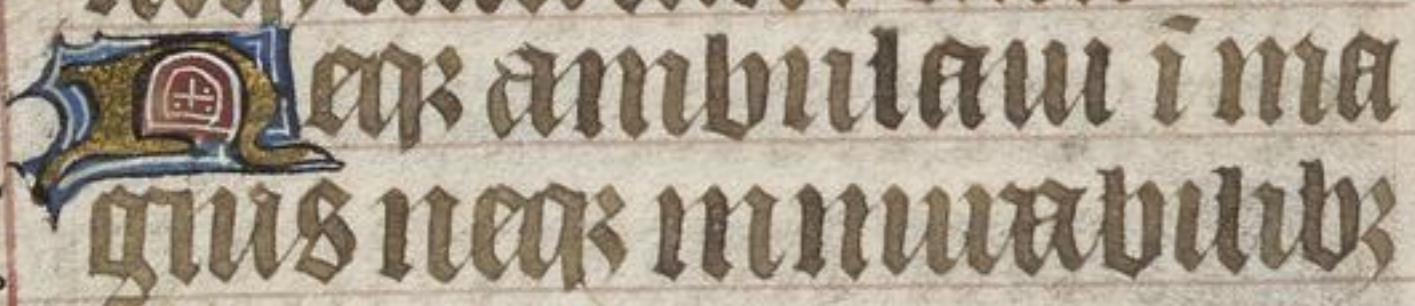 Neqꝫ ambulaui ī ma
gnis neqꝫ in mirabilibꝫ